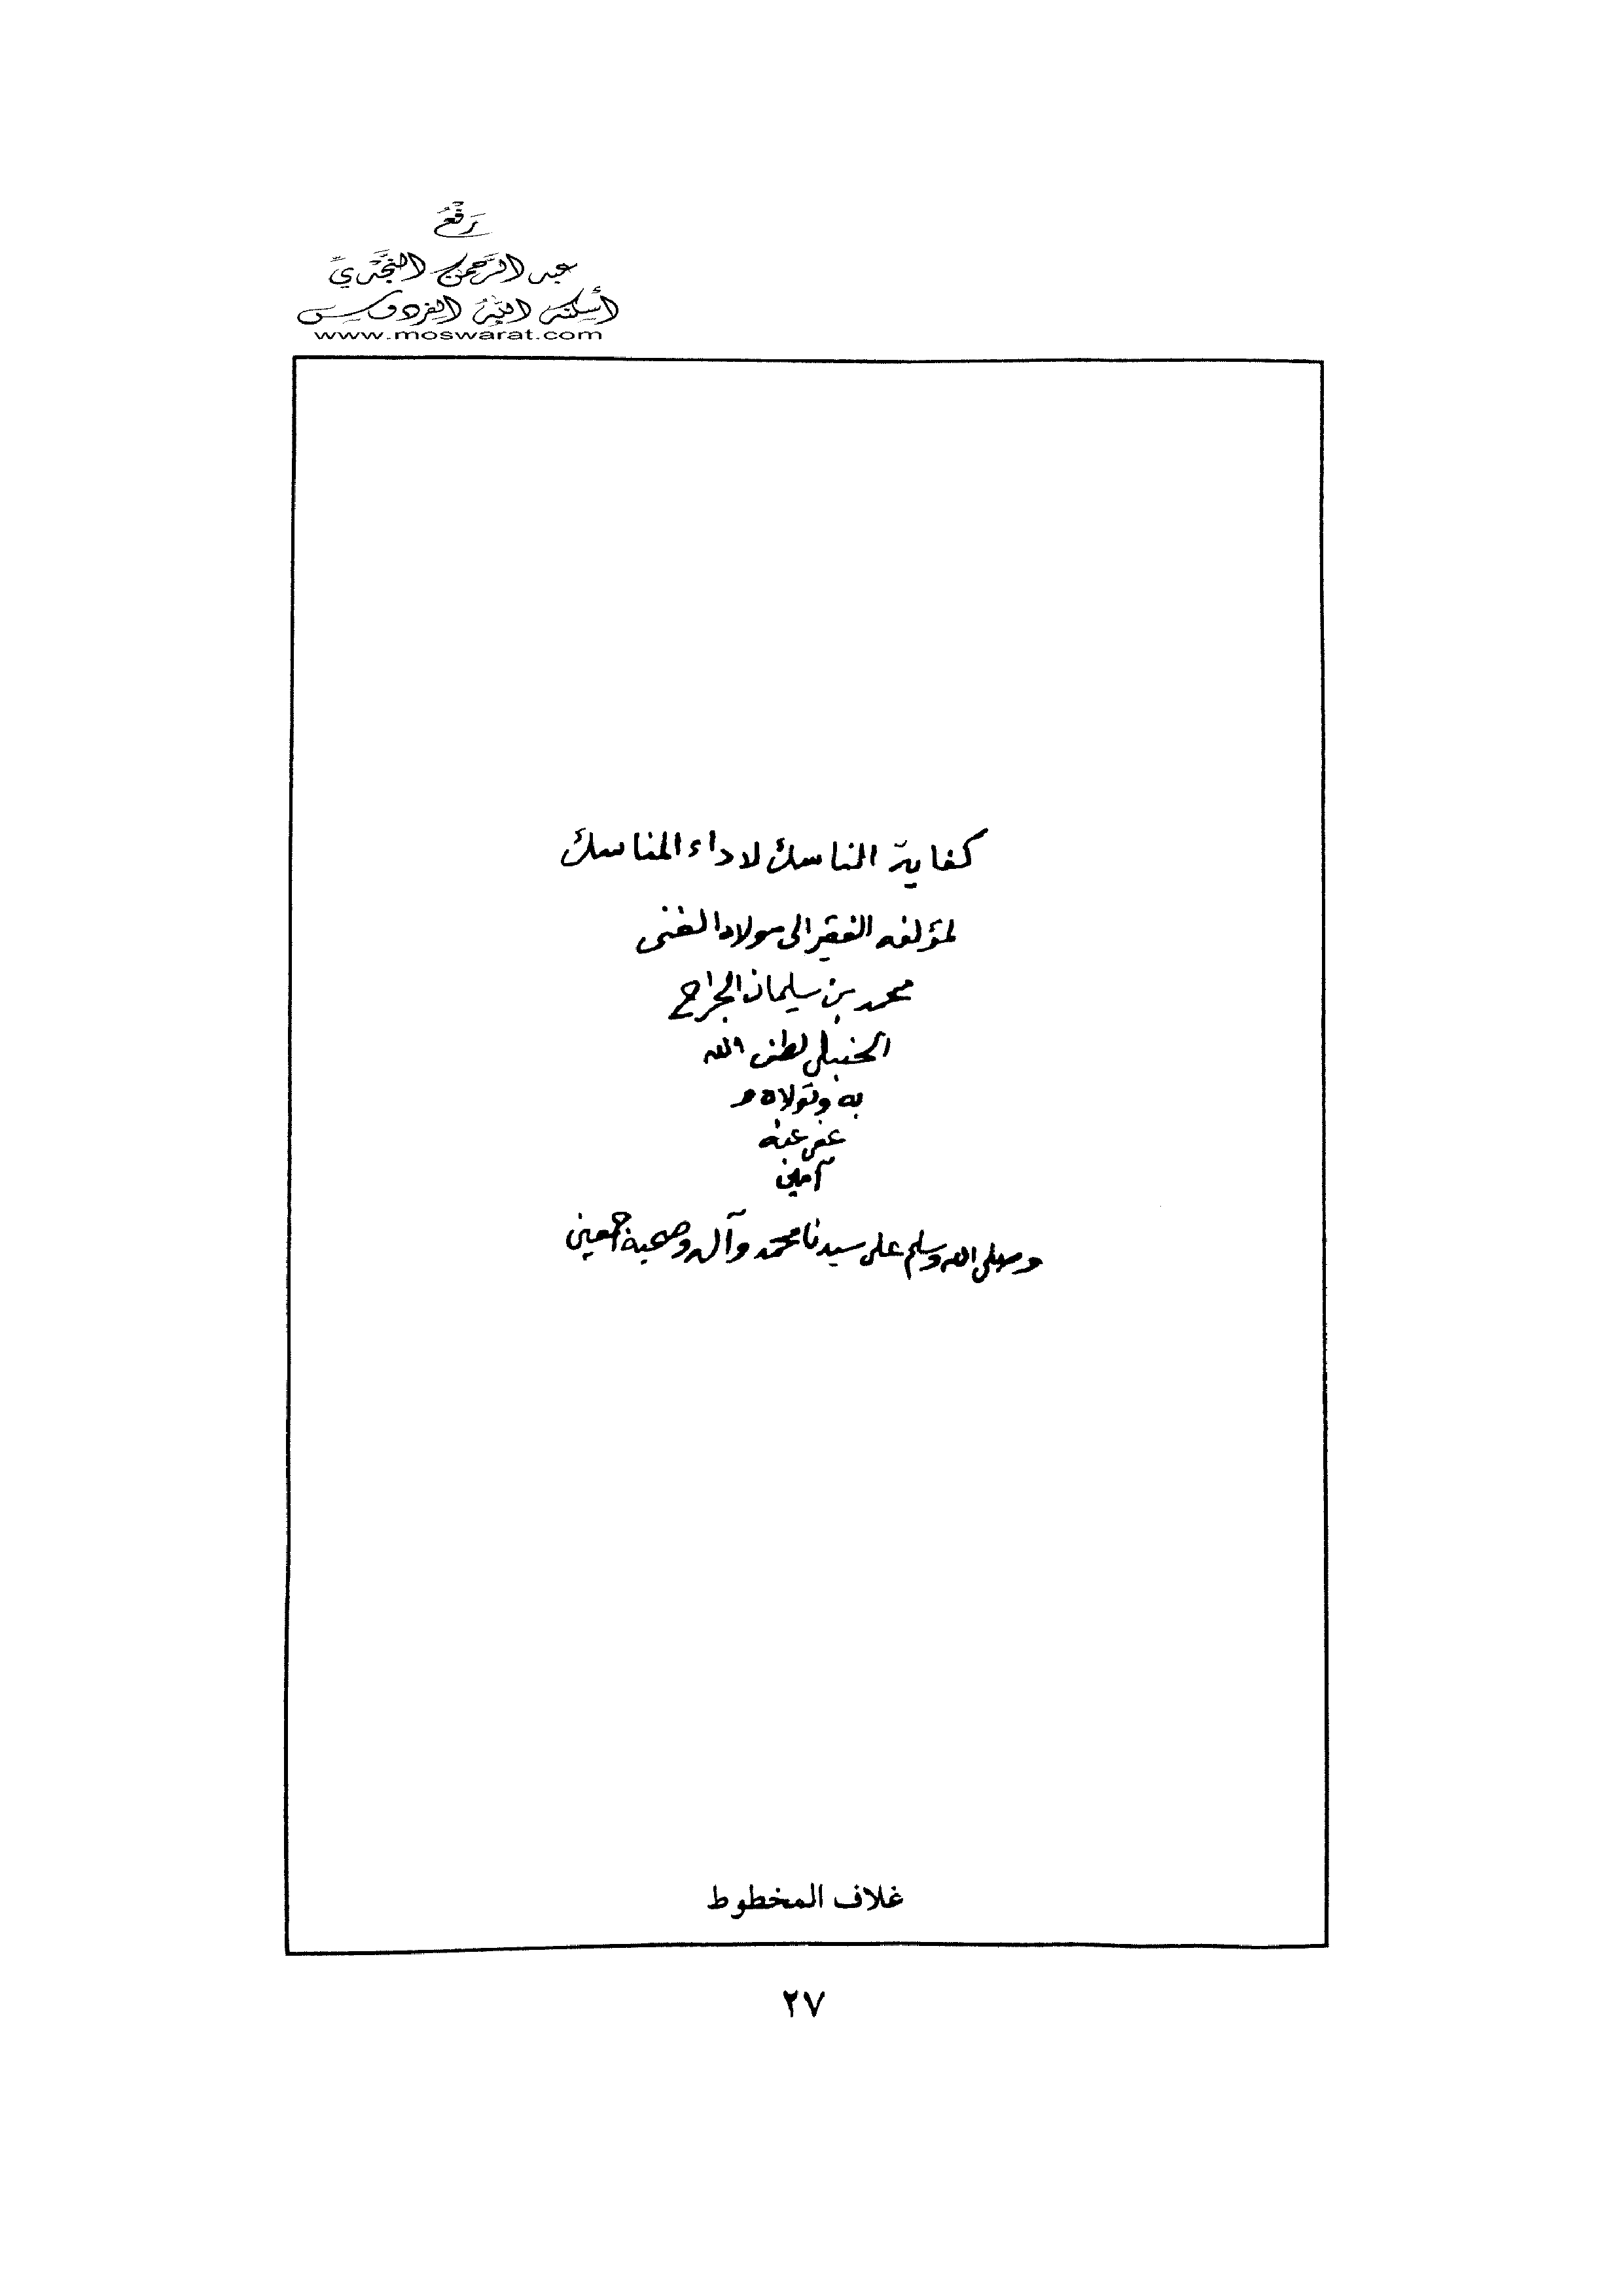 رَفْعُ
عبد الرَّحمن النَّجْديِّ
أسكنه اللهُ الفردوس
www.moswarat.com
كفاية الناسك لاداء المناسك
لمؤلفه الفقير الى مولاه الغنى
محمد بن سليمان الجراح
الحنبلى لطف الله
به وتولاه و
عفى عنه
آمين
وصلى الله وسلم على سيدنا محمد وآله وصحبه اجمعين
غلاف المخطوط
٢٧